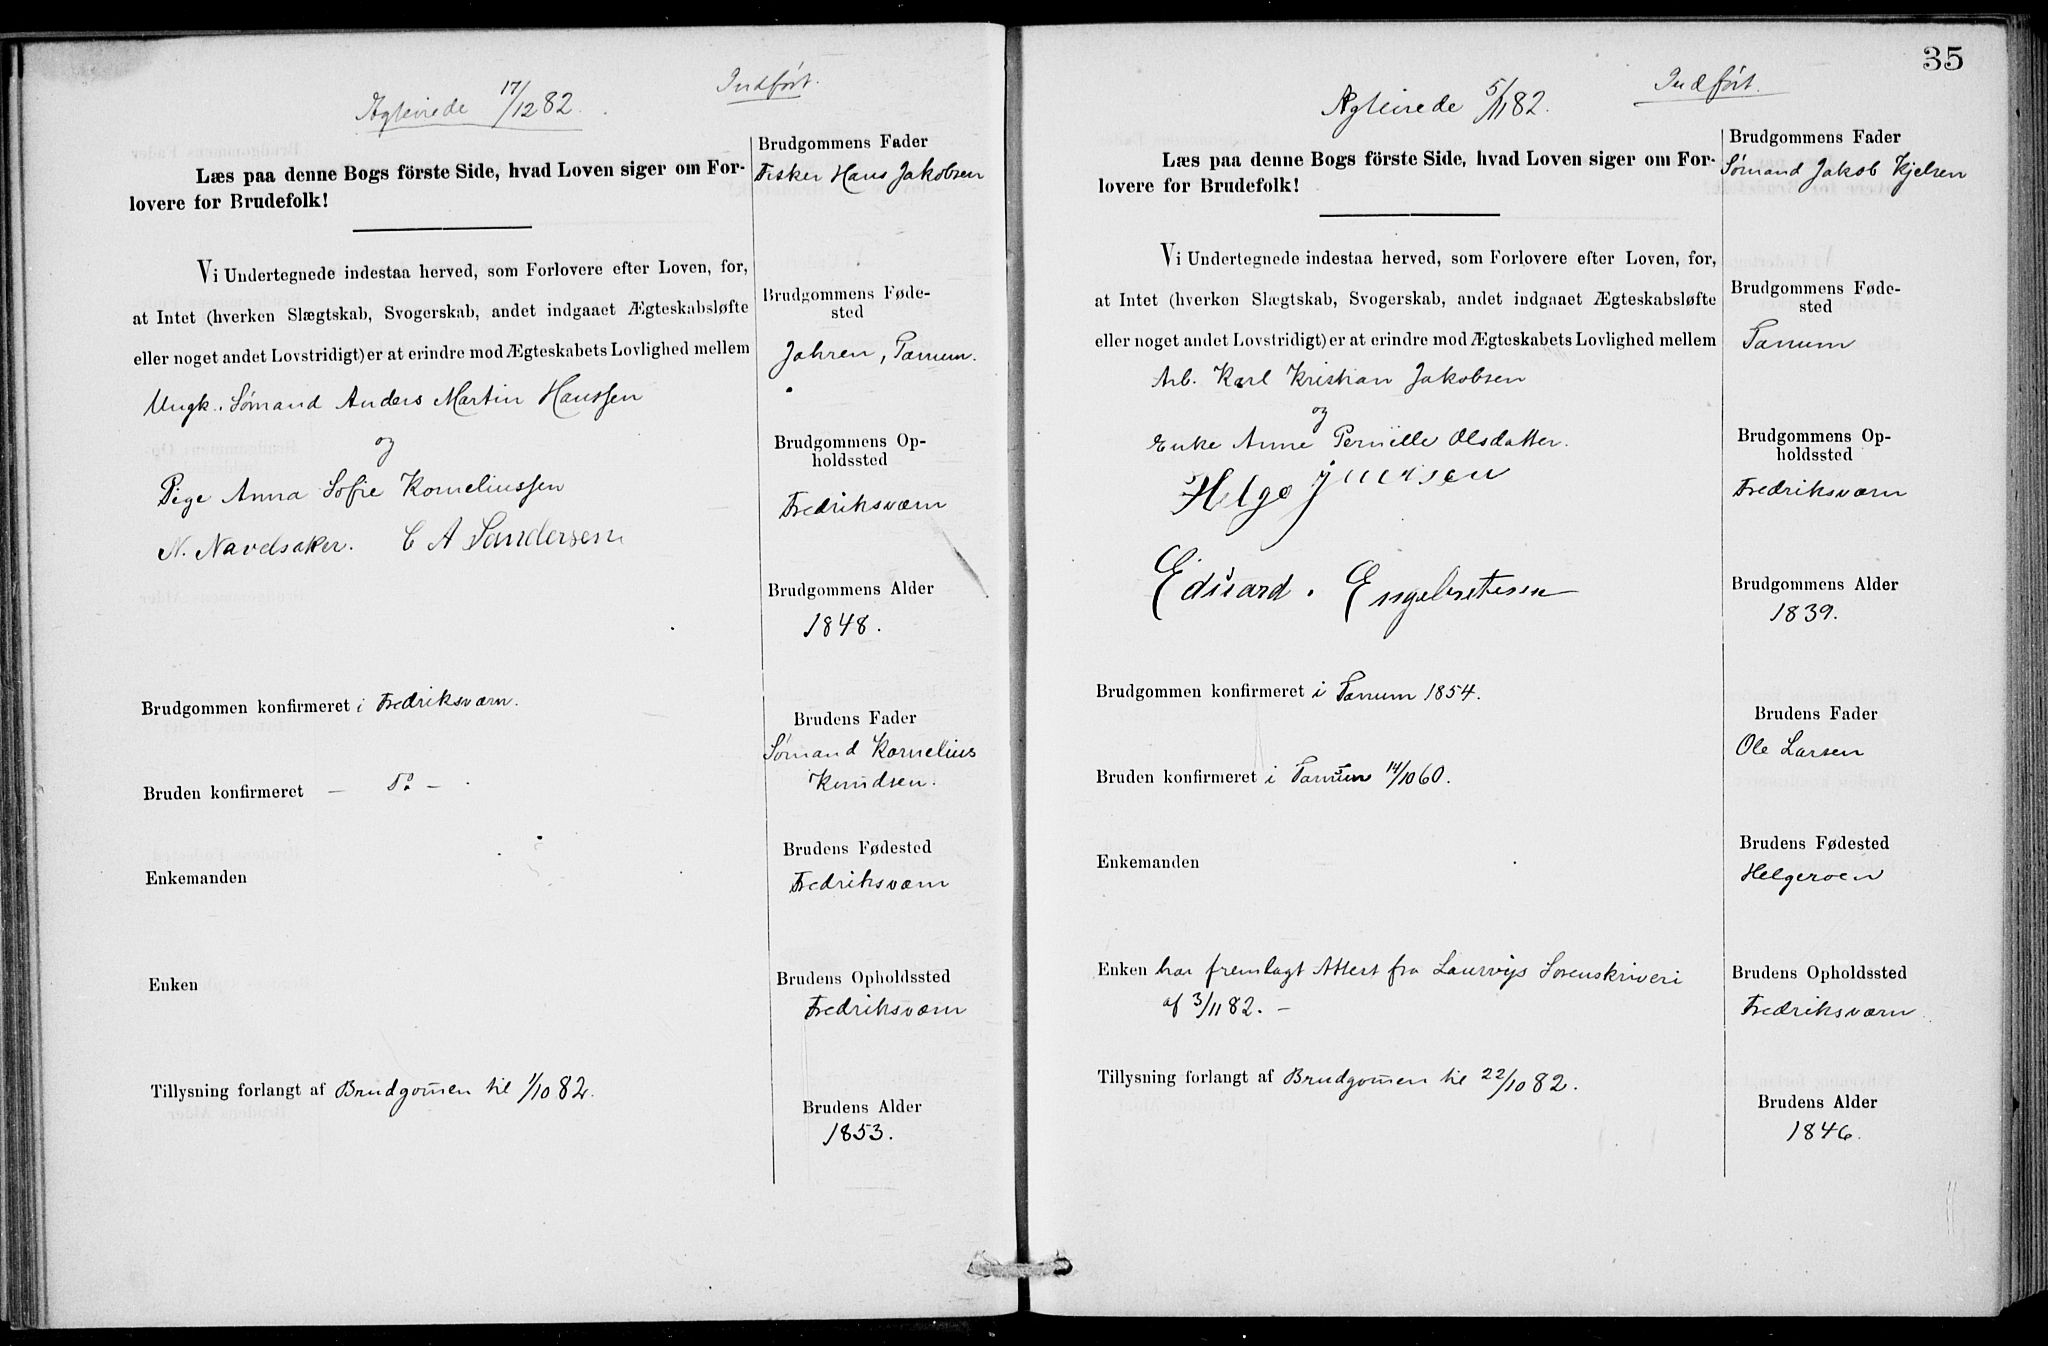 Ægteviede 17/12 82.
Indført.
Læs paa denne Bogs förste Side, hvad Loven siger om For-
lovere for Brudefolk!
Vi Undertegnede indestaa herved, som Forlovere efter Loven, for,
at Intet (hverken Slægtskab, Svogerskab, andet indgaaet Ægteskabsløfte
eller noget andet Lovstridigt) er at erindre mod Ægteskabets Lovlighed mellem
Ungk. Sømand Anders Martin Hanssen
og
Pige Anna Sofie Korneliussen
N. Navelsaker. C A Sandersen
Brudgommen konfirmeret i Fredriksværn.
Bruden konfirmeret — Do —
Enkemanden
Enken
Tillysning forlangt af Brudgom̅en til 1/10 82.
Brudgommens Fader
Fisker Hans Jakobsen
Brudgommens Føde-
sted
Jahren, Tanum.
Brudgommens Op-
holdssted
Fredriksværn
Brudgommens Alder
1848.
Brudens Fader
Sømand Kornelius
Knudsen.
Brudens Fødested
Fredriksværn
Brudens Opholdssted
Fredriksværn
Brudens Alder
1853.
35
Ægteviede 5/11 82.
Indført.
Læs paa denne Bogs förste Side, hvad Loven siger om For-
lovere for Brudefolk!
Vi Undertegnede indestaa herved, som Forlovere efter Loven, for,
at Intet (hverken Slægtskab, Svogerskab, andet indgaaet Ægteskabsløfte
eller noget andet Lovstridigt) er at erindre mod Ægteskabets Lovlighed mellem
Arb. Karl Kristian Jakobsen
og
Enke Anne Pernille Olsdatter.
Helge
Edvard. Engebretsen
Brudgommen konfirmeret i Tanum 1854.
Bruden konfirmeret i Tanum 14/10 60.
Enkemanden
Enken har fremlagt Attest fra Laurvigs Sorenskriveri
af 3/11 82. —
Tillysning forlangt af Brudgom̅en til 22/10 82.
Brudgommens Fader
Sømand Jakob Kjelsen
Brudgommens Føde-
sted
Tanum
Brudgommens Op-
holdssted
Fredriksværn
Brudgommens Alder
1839.
Brudens Fader
Ole Larsen
Brudens Fødested
Helgeroen
Brudens Opholdssted
Fredriksværn
Brudens Alder
1846.